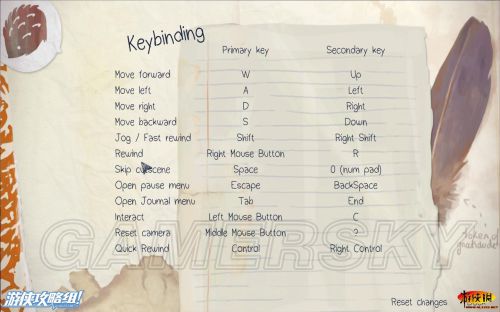 Keybinding
Primary key Secondary key
Move forward W Up
Move left A Left
Move right D Right
Move backward S Down
Jog / Fast rewind Shift Right Shift
Rewind Right Mouse Button R
Skip cutscene Space 0 (num pad)
Open pause menu Escape BackSpace
Open Journal menu Tab End
Interact Left Mouse Button C
Reset camera Middle Mouse Button ?
Quick Rewind Control Right Control
GAMERSKY
token of
gratitude
游侠攻略组!
Reset changes